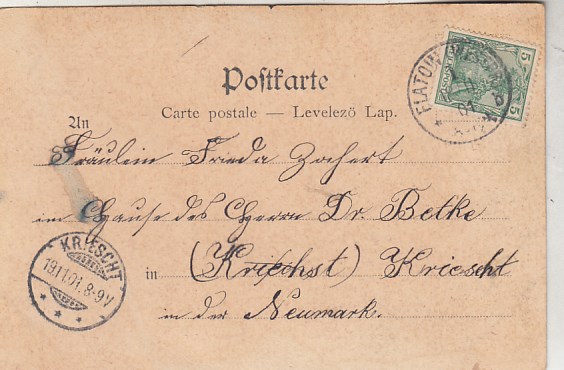 Postkarte
Carte postale — Levelező Lap.
An
Fräulein Frieda Zochert
im Hause des Herrn Dr. Betke
in (Kriechst) Kriescht
in der Neumark.
5
5
FLATOW
01
KRIESCHT
19.11.01. 8-9V